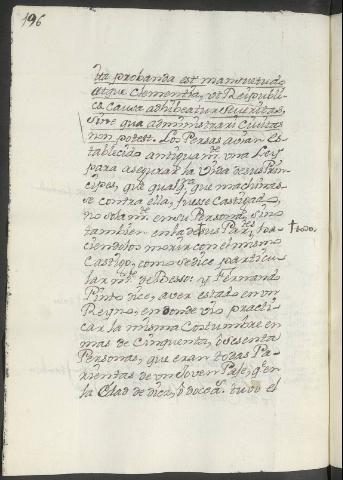 196
ita probanda est mansuetudo
atque clementia, ut Reipubli-
cæ causa adhibeatur severitas,
sine qua administrari Civitas
non potest. Los Persas avian es-
tablecido antiguamᵗᵉ. vna Ley
para asegurar la Vida de sus Prin-
cipes, que qualqᵃ. que machinas-
se contra ella, fuesse Castigado,
no solamᵗᵉ. en su Persona, sino
tambien en la de sus Parᵗᵉˢ. †
todo.
ciendolos morir con el mismo
Castigo, como se dice particu-
larmᵗᵉ. de Besso: y Fernando
Pinto dice, aver estado en vn
Reyno, en donde vio practi-
car la misma Costumbre en
mas de Cinquenta, ò sesenta
Personas, que eran todas Pa-
rientas de vn Joven Paje, qᵉ. en
la Edad de diez, ò doce aˢ. tuvo el